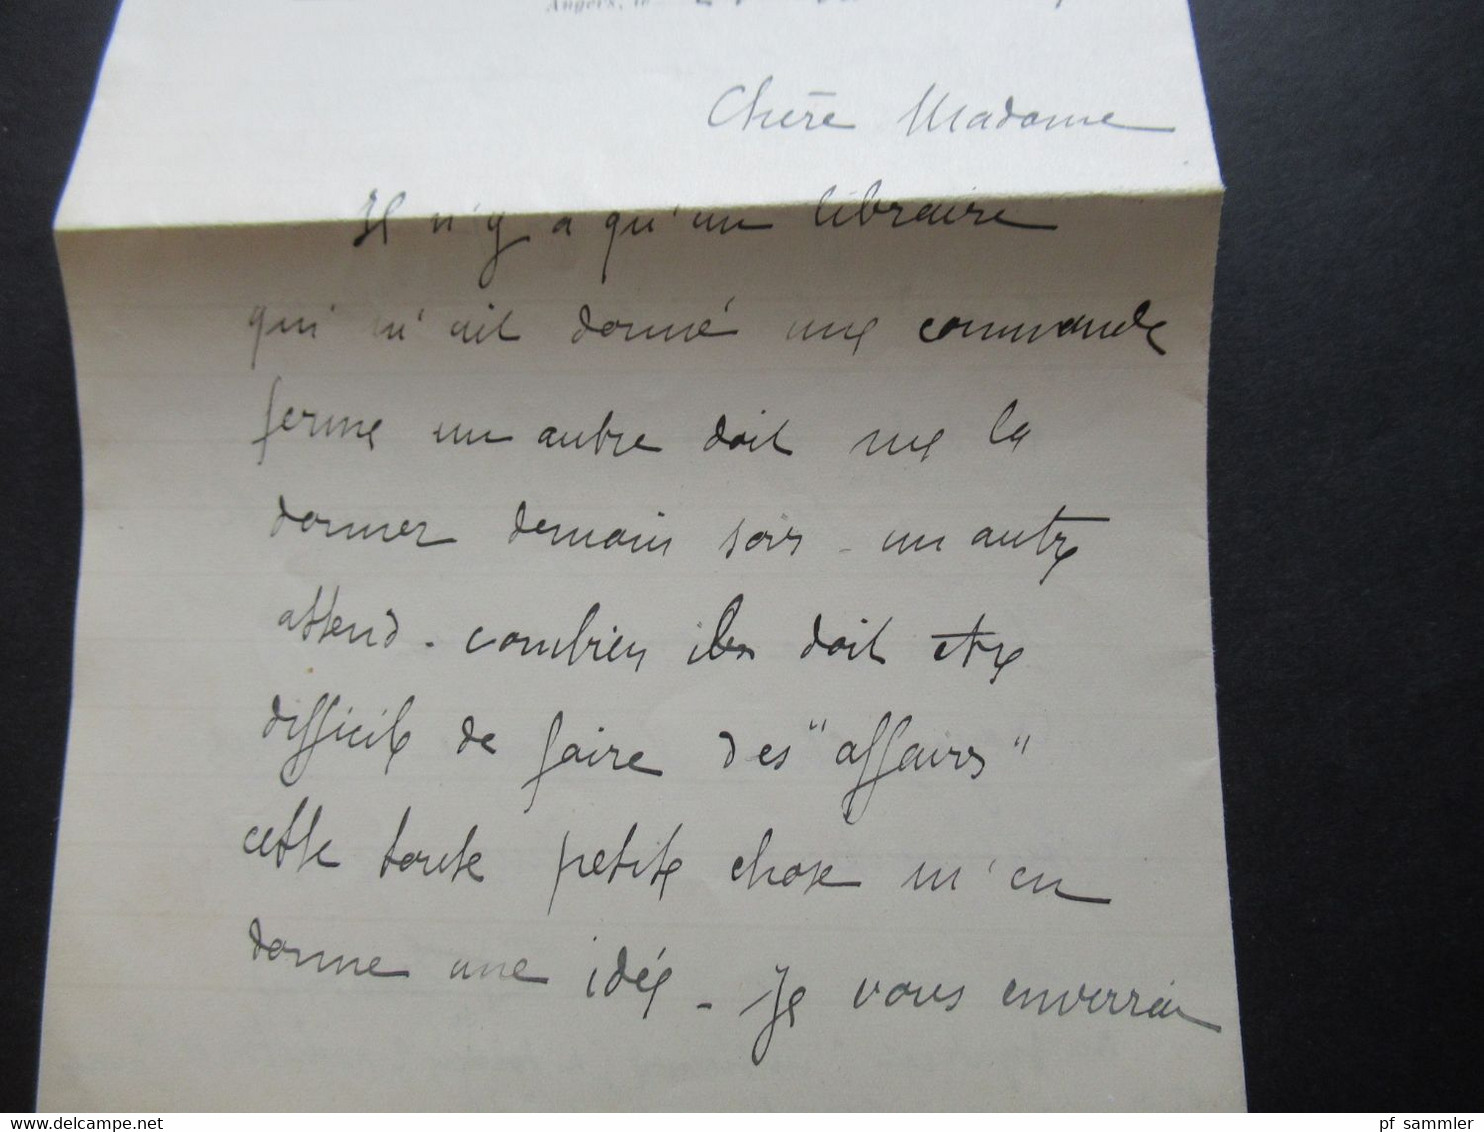 Angers, le
Chère Madame
Il n'y a qu'un libraire
qui m'ait donné une commande
ferme un autre doit me la
donner demain soir - un autre
attend - combien il doit etre
difficile de faire des "affaires"
cette toute petite chose m'en
donne une idée - Je vous enverrai
www.delcampe.net
pf_sammler